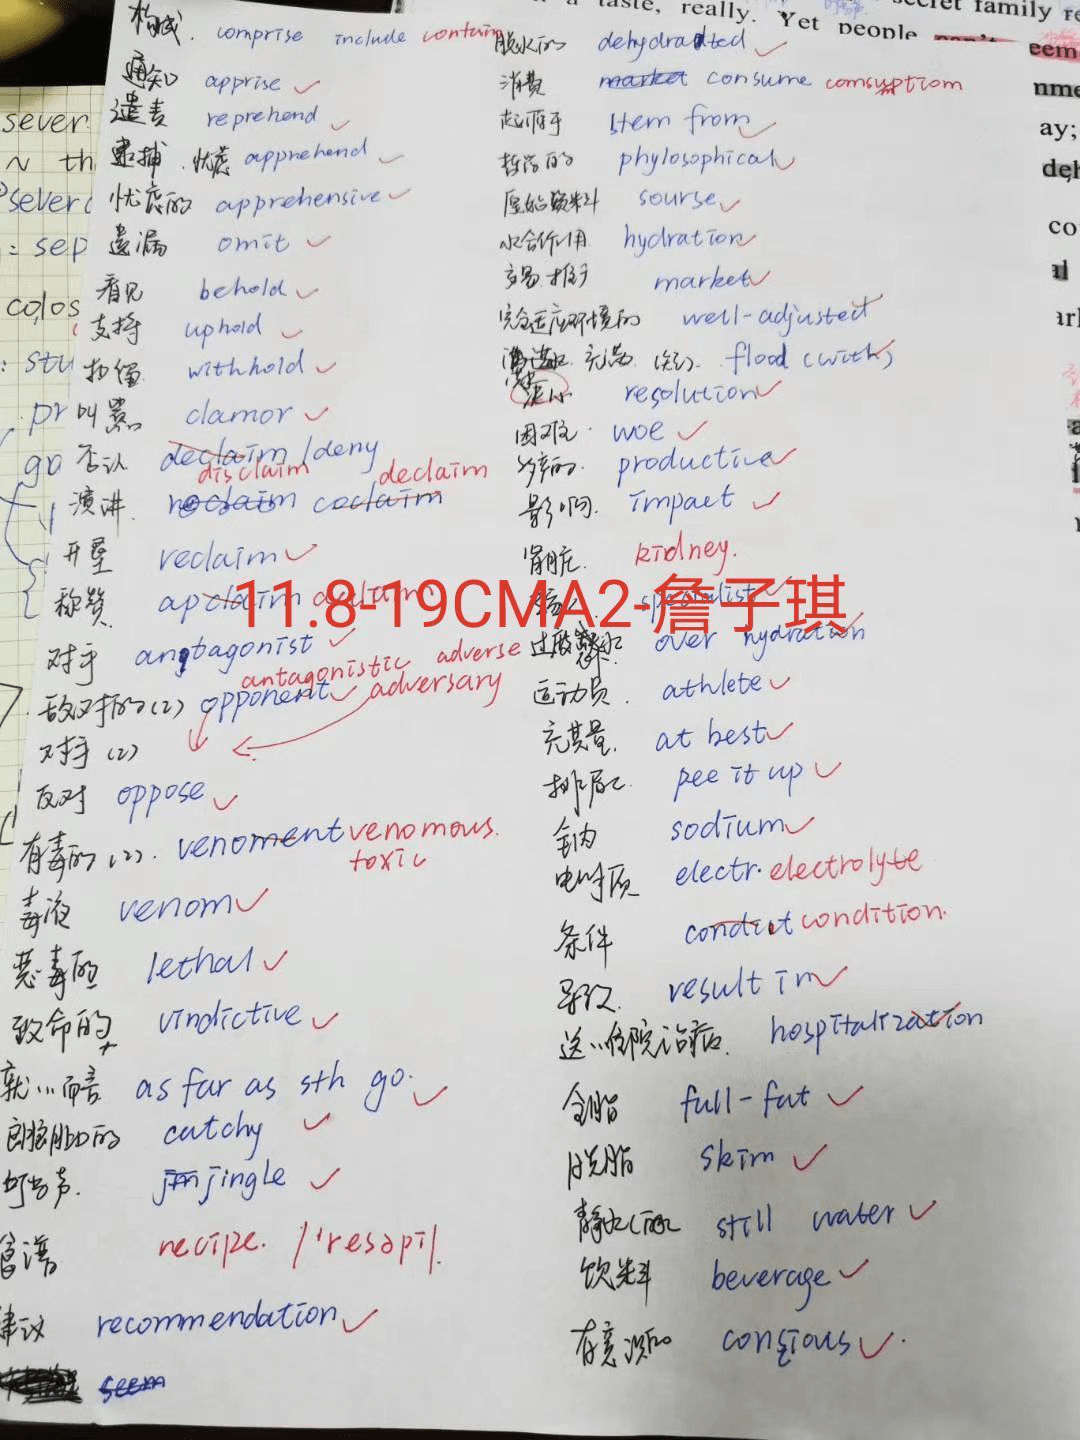 a taste, really. Yet people can't seem
secret family re
nme
ay;
deh
co
al
ark
sever
~ th
severe
= sep
colos
: stu
pr
go
构成. comprise include contain
通知 apprise
谴责 reprehend
逮捕. 忧虑 apprehend
忧虑的 apprehensive
遗漏 omit
看见 behold
支持 uphold
withhold
叫嚣 clamor
否认 declaim /deny
disclaim
演讲. coclaim declaim
开垦 reclaim
称赞 apclaim acclaim
对手 antagonist
敌对的(2) opponent antagonistic adverse
对手(2) adversary
反对 oppose
有毒的(2). venoment venomous.
toxic
毒液 venom
恶毒的 lethal
致命的 vindictive
就…而言 as far as sth go.
朗朗上口的 catchy
叮当声. jingle
食谱 recipe. /'resəpi/.
建议 recommendation
seem
脱水的 dehydrated
消费 market consume comsuptiom
起源于 stem from
哲学的 phylosophical
原始颜料 sourse
水合作用 hydration
交易.推广 market
完全适应环境的 well-adjusted
充满 flood (with)
resolution
困难. woe
多产的. productive
影响. impact
肾脏. kidney.
specialist
过度 over hydration
运动员. athlete
充其量. at best
排尿. pee it up
钠 sodium
电解质 electr. electrolyte
条件 condict condition.
导致. result in
送…住院治病. hospitalization
全脂 full-fat
脱脂 skim
静水 still water
饮料 beverage
有意识的 consious.
11.8-19CMA2-詹子琪